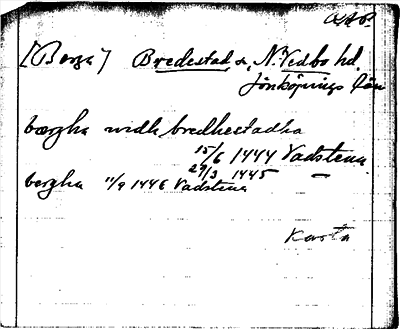 [Berga] Bredestad s, N. Vedbo hd,
Jönköpings län
bærgha widh bredhestadha
15/6 1444 Vadstena
29/3 1445 —
bergha 11/9 1446 Vadstena
Karta